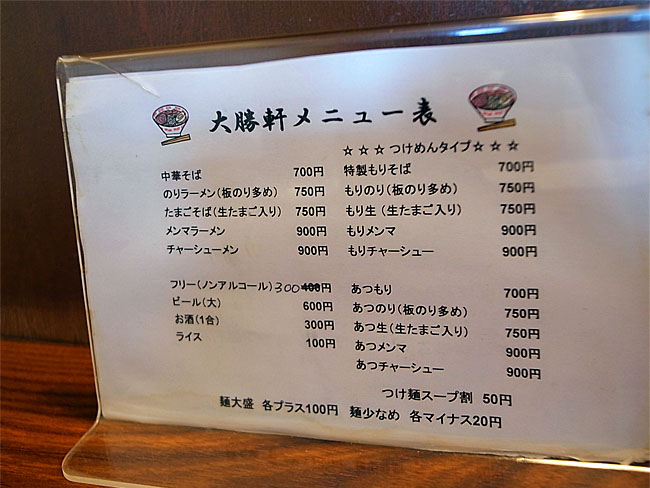 大勝軒メニュー表
中華そば 700円
のりラーメン(板のり多め) 750円
たまごそば(生たまご入り) 750円
メンマラーメン 900円
チャーシューメン 900円
☆☆☆つけめんタイプ☆☆☆
特製もりそば 700円
もりのり(板のり多め) 750円
もり生(生たまご入り) 750円
もりメンマ 900円
もりチャーシュー 900円
フリー(ノンアルコール) 300 400円
ビール(大) 600円
お酒(1合) 300円
ライス 100円
あつもり 700円
あつのり(板のり多め) 750円
あつ生(生たまご入り) 750円
あつメンマ 900円
あつチャーシュー 900円
つけ麺スープ割 50円
麺大盛 各プラス100円 麺少なめ 各マイナス20円